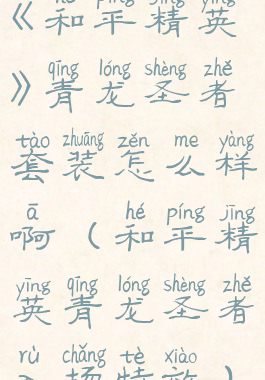 hé píng jīng yīng
《和平精英
qīng lóng shèng zhě
》青龙圣者
tào zhuāng zěn me yàng
套装怎么样
ā hé píng jīng
啊(和平精
yīng qīng lóng shèng zhě
英青龙圣者
rù chǎng tè xiào
入场特效)